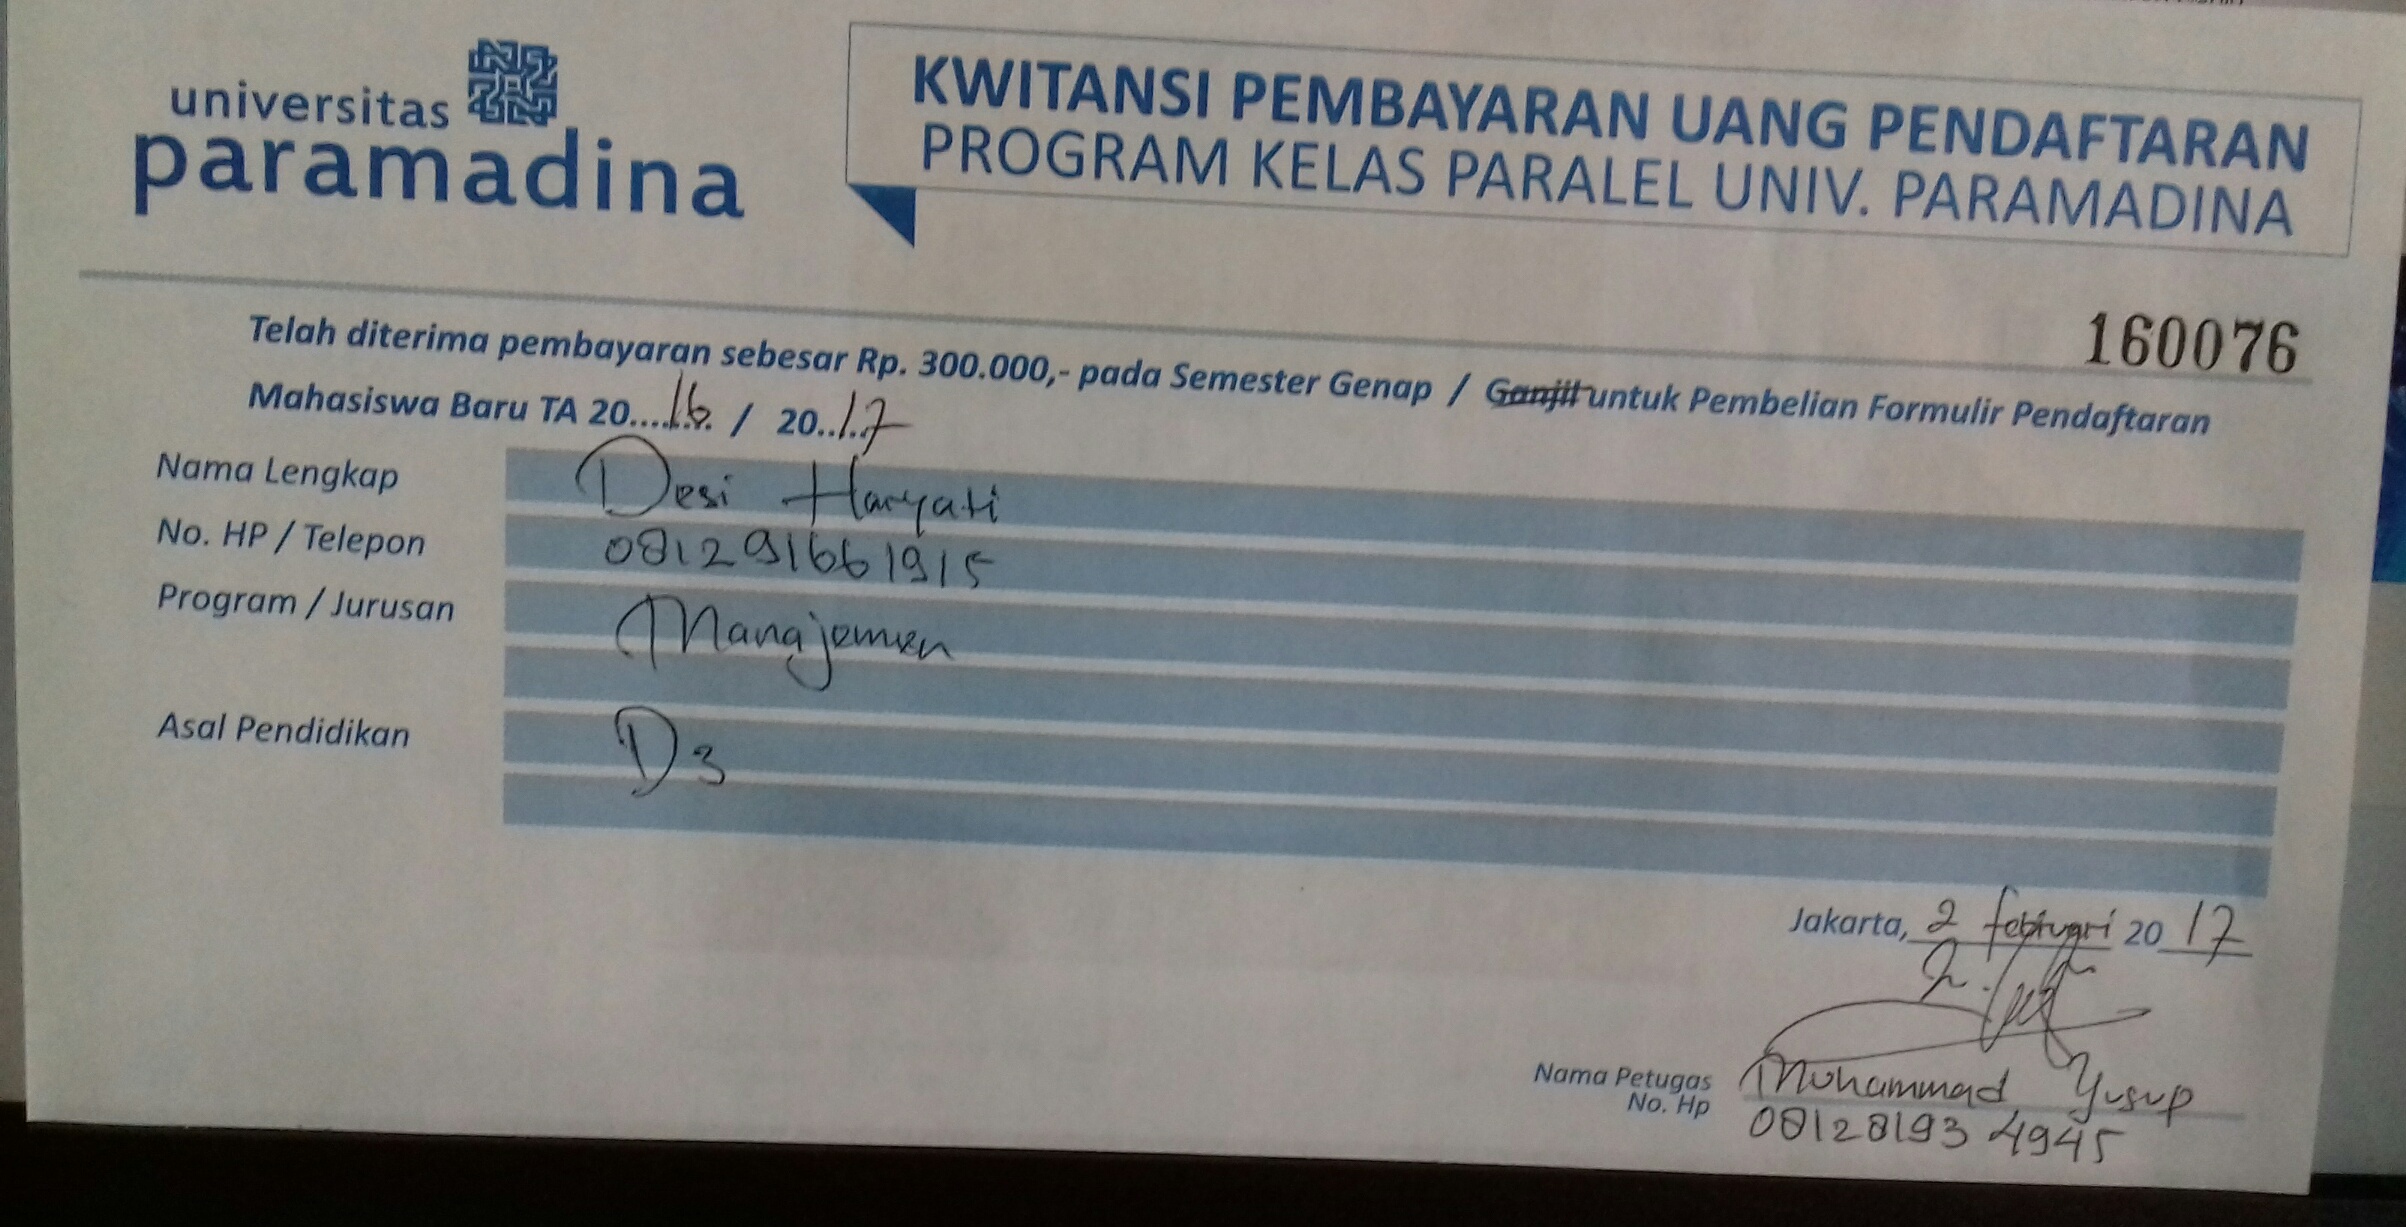 universitas
paramadina
KWITANSI PEMBAYARAN UANG PENDAFTARAN
PROGRAM KELAS PARALEL UNIV. PARAMADINA
160076
Telah diterima pembayaran sebesar Rp. 300.000,- pada Semester Genap / Ganjil untuk Pembelian Formulir Pendaftaran
Mahasiswa Baru TA 20....16. / 20..17
Nama Lengkap Desi Haryati
No. HP / Telepon 081291661915
Program / Jurusan Manajemen
Asal Pendidikan D3
Jakarta, 2 februari 20 17
Nama Petugas Muhammad Yusup
No. Hp 08128193 4945